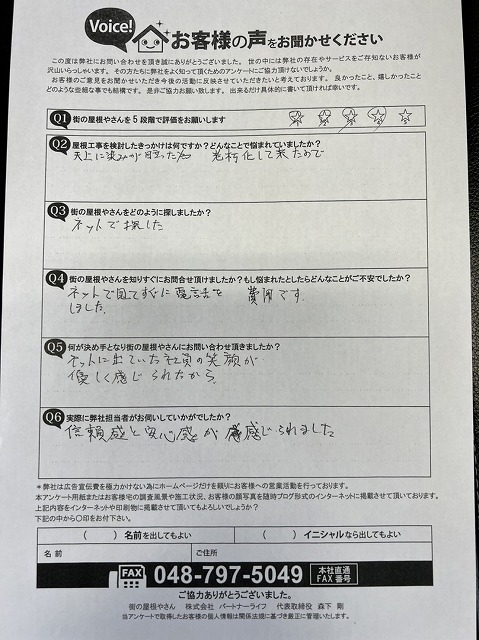 Voice!
お客様の声をお聞かせください
この度は弊社にお問い合わせを頂き誠にありがとうございました。世の中には弊社の存在やサービスをご存知ないお客様が
沢山いらっしゃいます。その方たちに弊社をよく知って頂くためのアンケートにご協力頂けないでしょうか。
お客様のご意見をお聞かせいただき今後の活動に反映させていただきたいと考えております。良かったこと、嬉しかったこと
どのような些細な事でも結構です。是非ご協力お願い致します。出来るだけ具体的に書いて頂ければ幸いです。
Q1 街の屋根やさんを5段階で評価をお願いします
Q2 屋根工事を検討したきっかけは何ですか?どんなことで悩まれていましたか?
天上に染みが目立った為 老朽化して来たので
Q3 街の屋根やさんをどのように探しましたか?
ネットで探した
Q4 街の屋根やさんを知りすぐにお問合せ頂けましたか?もし悩まれたとしたらどんなことがご不安でしたか?
ネットで見てすぐに電話を 費用です.
しました.
Q5 何が決め手となり街の屋根やさんにお問い合わせ頂きましたか?
ネットに出ていた社員の笑顔が
優しく感じられたから.
Q6 実際に弊社担当者がお伺いしていかがでしたか?
信頼感と安心感が感じられました
＊弊社は広告宣伝費を極力かけない為にホームページだけを頼りにお客様への営業活動を行っております。
本アンケート用紙またはお客様宅の調査風景や施工状況、お客様の顔写真を随時ブログ形式のインターネットに掲載させて頂いております。
上記内容をインターネットや印刷物に掲載させて頂いてもよろしいでしょうか?
下記の中から〇印をお付下さい。
( ) 名前を出してもよい ( ) イニシャルなら出してもよい
名前 ご住所
FAX 048-797-5049 本社直通
FAX番号
ご協力ありがとうございました。
街の屋根やさん 株式会社 パートナーライフ 代表取締役 森下 剛
当アンケートで取得したお客様の個人情報は関係法規に基づき厳正に管理いたします。